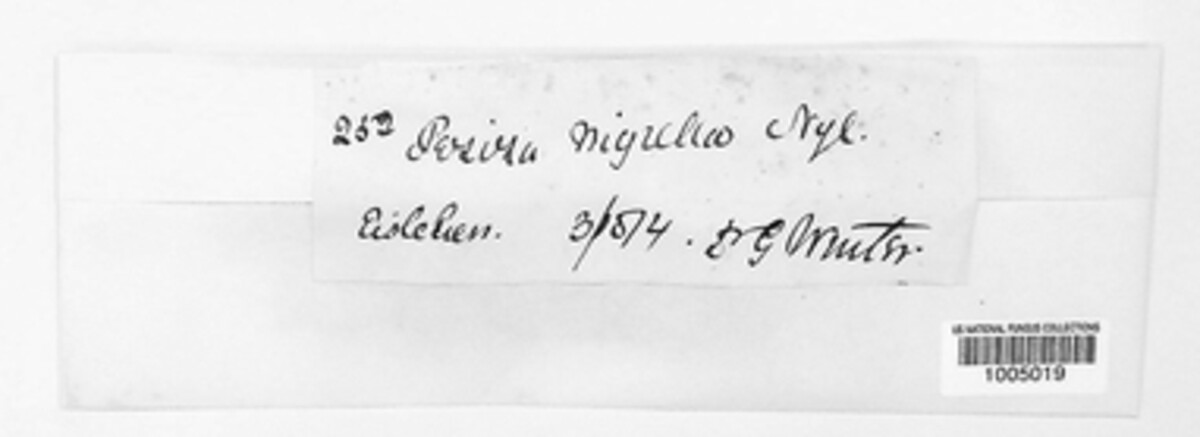 Peziza nigrella Nyl.
Eisleben. Dr G Winter.
US NATIONAL FUNGUS COLLECTIONS
1005019